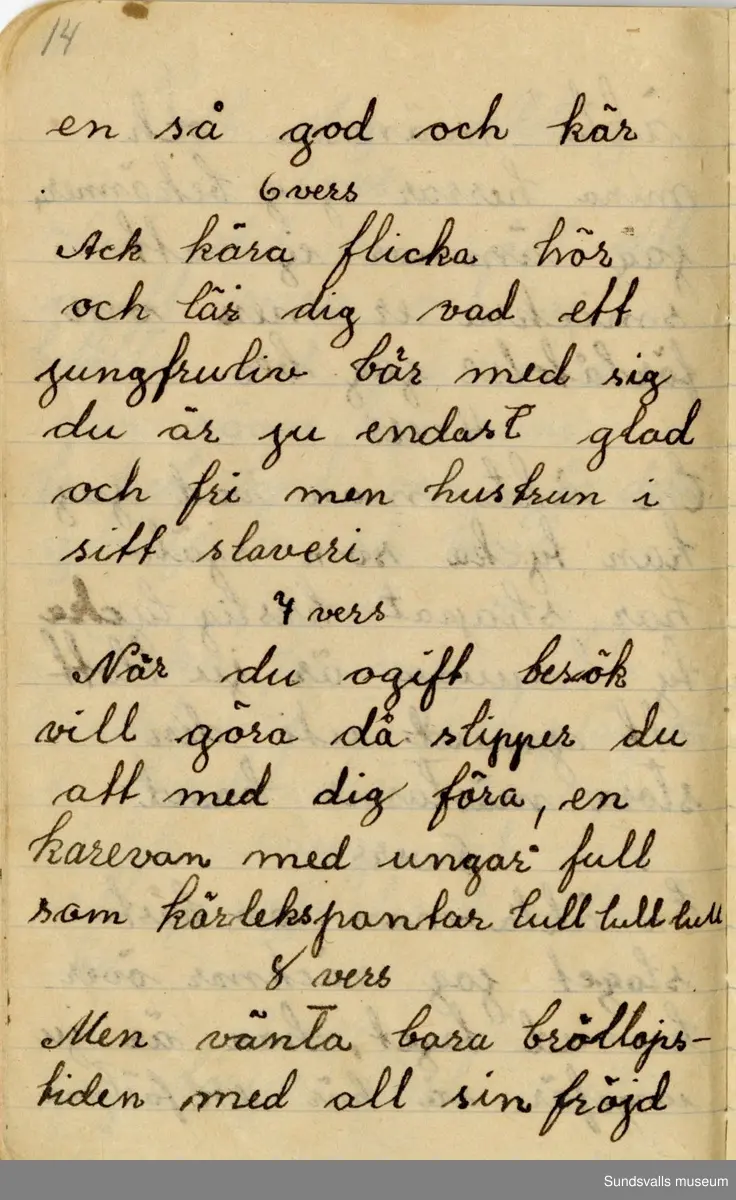 14
en så god och kär
6 vers
Ack kära flicka hör
och lär dig vad ett
jungfruliv bär med sig
du är ju endast glad
och fri men hustrun i
sitt slaveri
7 vers
När du ogift besök
vill göra då slipper du
att med dig föra, en
karevan med ungar full
som kärlekspantar lull lull lull
8 vers
Men vänta bara bröllops-
tiden med all sin fröjd
Sundsvalls museum